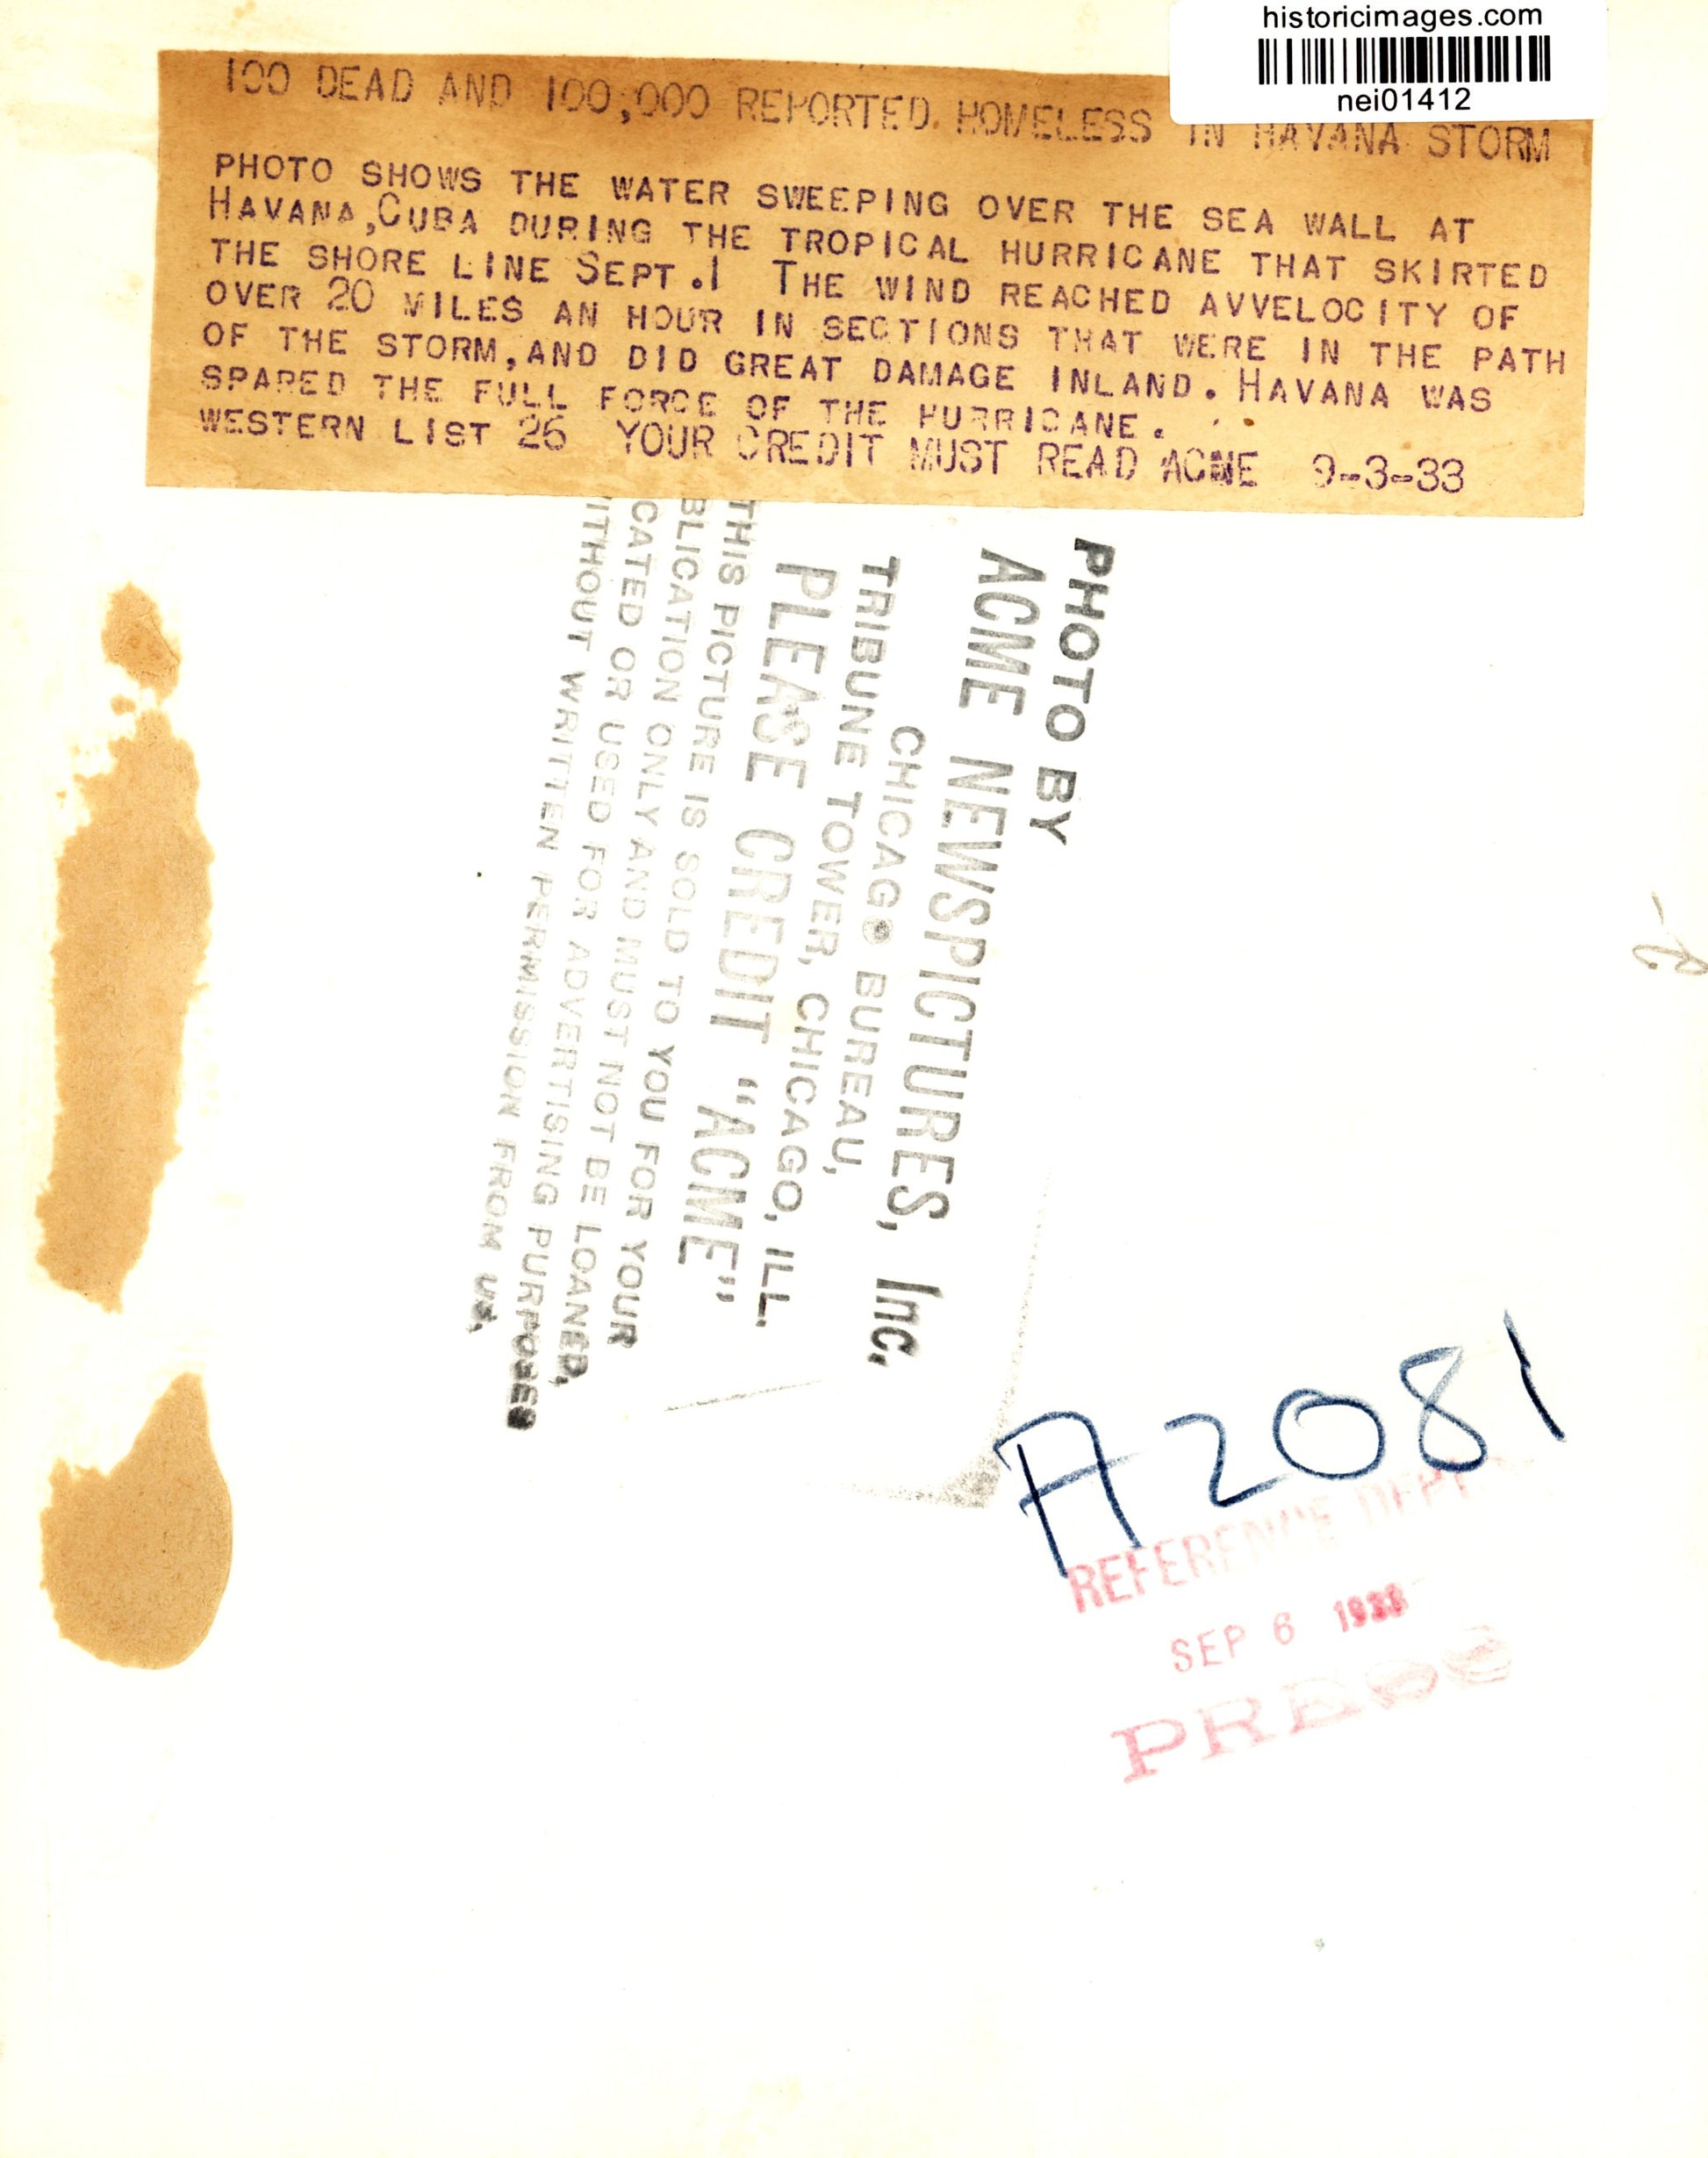 historicimages.com
nei01412
100 DEAD AND 100,000 REPORTED HOMELESS IN HAVANA STORM
PHOTO SHOWS THE WATER SWEEPING OVER THE SEA WALL AT
HAVANA,CUBA DURING THE TROPICAL HURRICANE THAT SKIRTED
THE SHORE LINE SEPT.1 THE WIND REACHED AVVELOCITY OF
OVER 20 MILES AN HOUR IN SECTIONS THAT WERE IN THE PATH
OF THE STORM,AND DID GREAT DAMAGE INLAND. HAVANA WAS
SPARED THE FULL FORCE OF THE HURRICANE.
WESTERN LIST 26 YOUR CREDIT MUST READ ACME 9-3-33
PHOTO BY
ACME NEWSPICTURES, Inc.
CHICAGO BUREAU,
TRIBUNE TOWER, CHICAGO, ILL.
PLEASE CREDIT "ACME"
THIS PICTURE IS SOLD TO YOU FOR YOUR
BLICATION ONLY AND MUST NOT BE LOANED,
CATED OR USED FOR ADVERTISING PURPOSES
ITHOUT WRITTEN PERMISSION FROM US.
A2081
REFERENCE DEPT
SEP 6 1933
PRESS